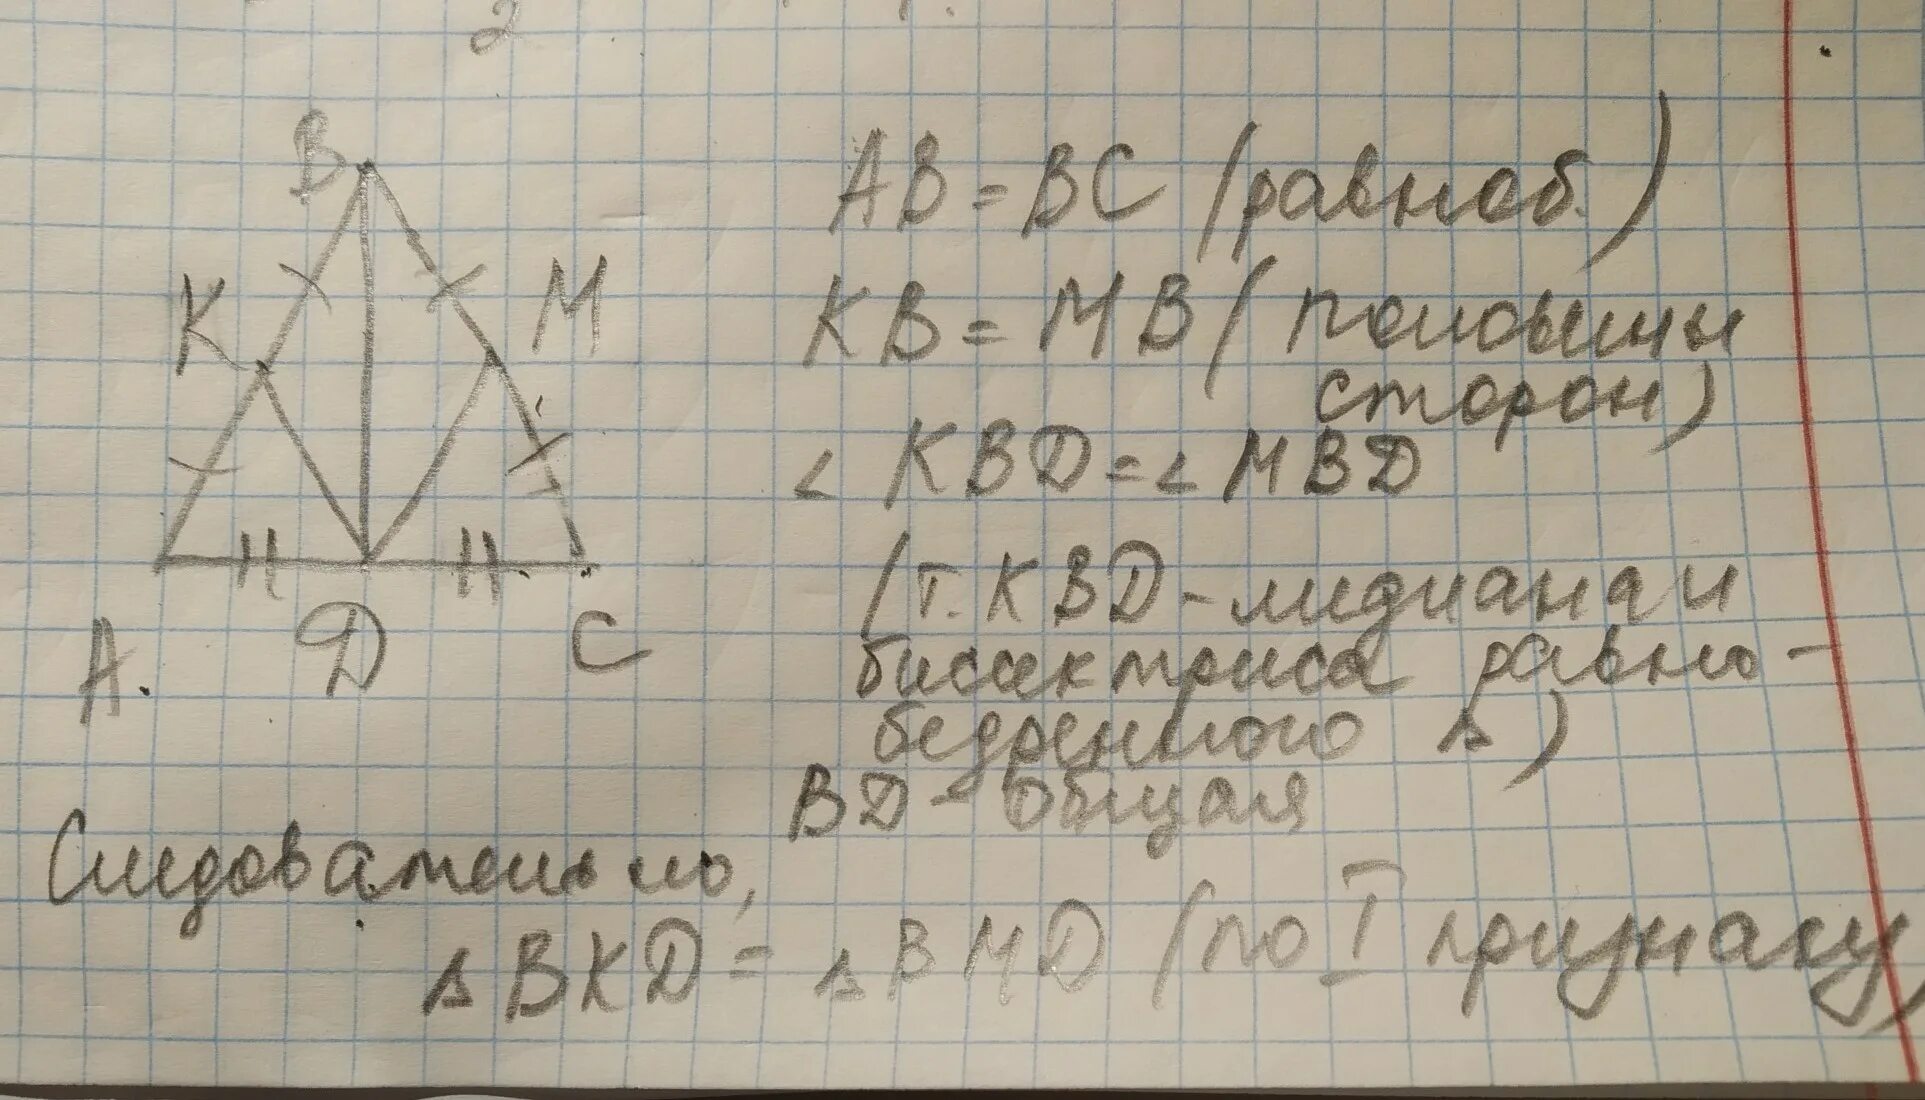 2
B
K
M
A.
D
C
AB = BC (равноб.)
KB = MB (половины
сторон)
< KBD = < MBD
(т.к BD - медиана и
биссектриса равно-
бедренного Δ)
BD - общая
Следовательно,
Δ BKD = Δ BMD (по I признаку)